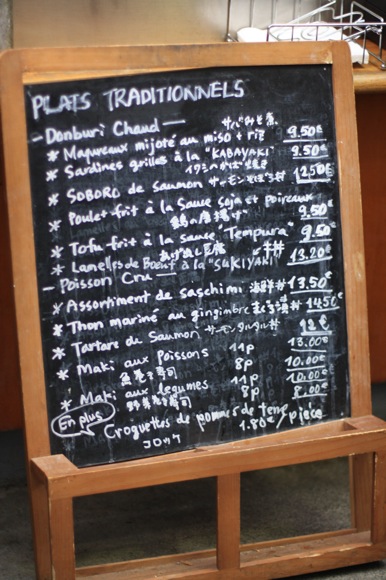 PLATS TRADITIONNELS
- Donburi Chaud -
サバみそ煮
* Maquereaux mijoté au miso + riz 9.50€
* Sardines grillés à la "KABAYAKI" 9.50€
イワシのかば焼き
* SOBORO de saumon サーモンそぼろ丼 12.50€
* Poulet frit à la sauce Soja et poireaux 9.50€
鶏の唐揚げ
* Tofu frit à la sauce "Tempura" 9.50€
あげ出し豆腐
* Lamelles de Boeuf à la "SUKIYAKI" 13.20€
- Poisson Cru -
* Assortiment de saschimi 海鮮丼 13.50€
* Thon mariné au gingimbre まぐろ漬丼 14.50€
* Tartare du Saumon サーモンタルタル丼 12€
* Maki aux Poissons 11p 13.00€
魚巻き寿司 8p 10.00€
* Maki aux legumes 11p 10.00€
野菜巻き寿司 8p 8.00€
En plus
Croquettes de pommes de terre
コロッケ 1.80€/piece